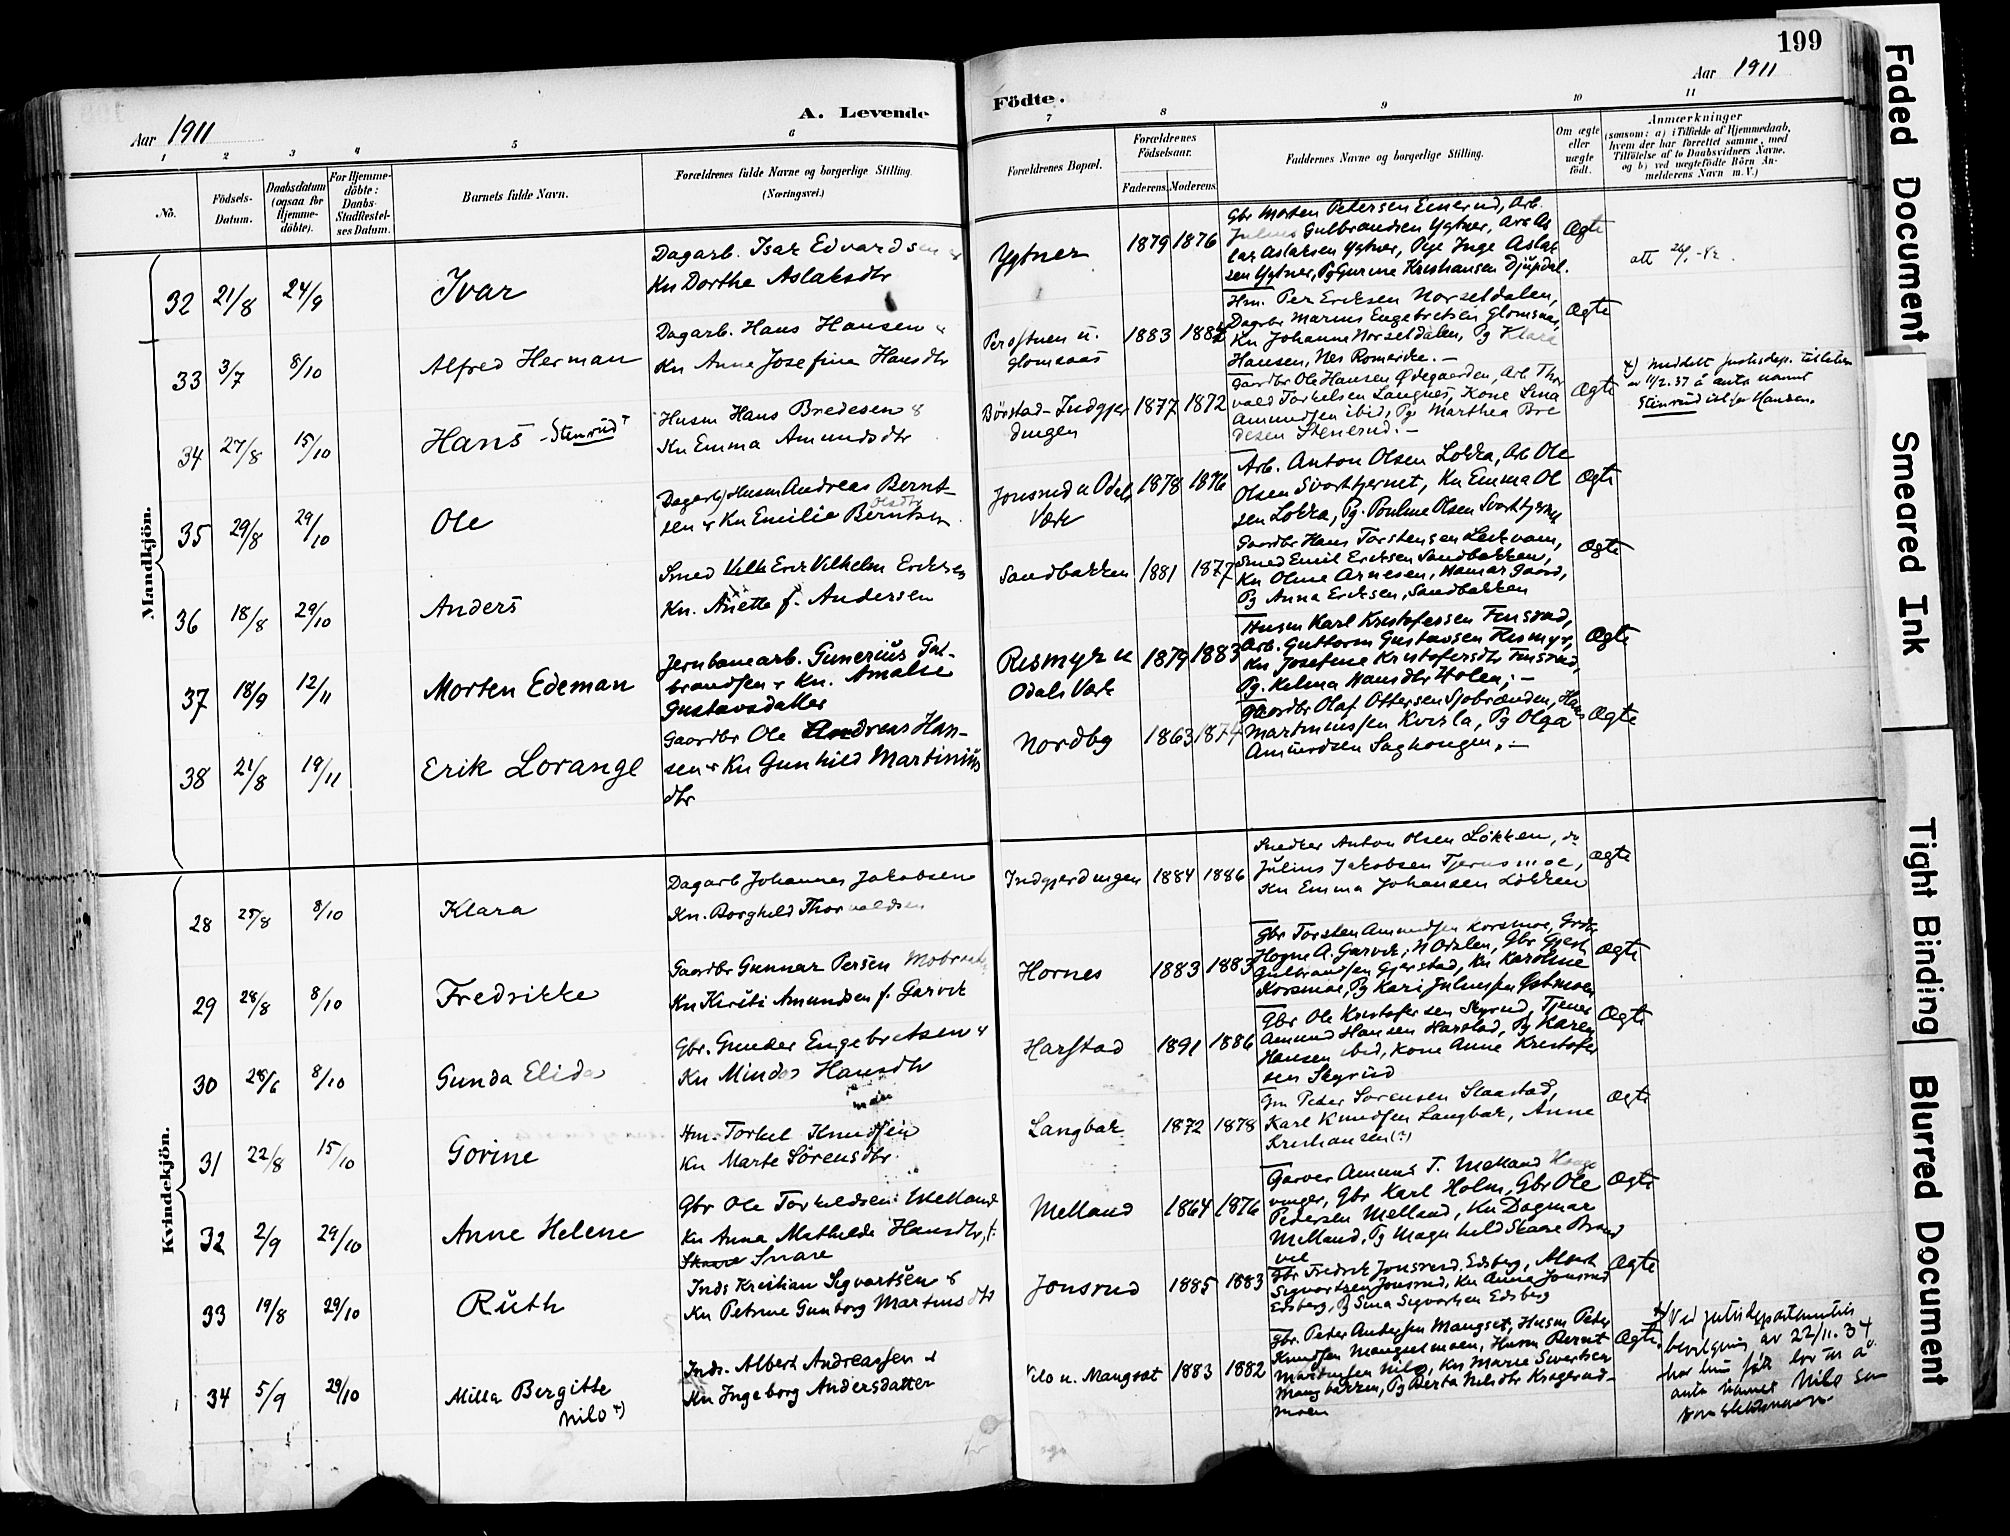 199
Aar 1911
A. Levende
Födte.
Aar 1911
1 2 3 4 5 6 7 8 9 10 11
No.
Födsels-
Datum.
Daabsdatum
(ogsaa for
Hjemme-
döbte).
For Hjemme-
döbte:
Daabs-
Stadfestel-
ses Datum.
Barnets fulde Navn.
Forældrenes fulde Navne og borgerlige Stilling.
(Næringsvei.)
Forældrenes Bopæl.
Forældrenes
Födselsaar.
Faderens. Moderens.
Faddernes Navne og borgerlige Stilling.
Om ægte
eller
uægte
født.
Anmærkninger
(saasom: a) i Tilfælde af Hjemmedaab,
hvem der har forrettet samme, med
Tilföielse af to Daabsvidners Navne,
og b) ved uægtefödte Börn An-
melderens Navn m. V.)
Mandkjön.
32 21/8 24/9 Ivar
Dagarb. Isak Edvardsen &
Kn Dorthe Aslaksdtr
Ygtner 1879 1876
Gbr Morten Petersen Einerud, Arb.
Julius Gulbrandsen Ygtner, Arb As
lak Aslaksen Ygtner, Pge Inge Aslak
sen Ygtner, Pg Gurine Kristiansen Djupdal.
Ægte
33 3/7 8/10 Alfred Herman
Dagarb. Hans Hansen &
Kn Anne Josefine Hansdtr
Perstuen u.
Glomsaas
1883
Hm. Per Eriksen Norseldalen,
Dagarbr Marius Engebretsen Glomsaas,
Kn Johanne Norseldalen, Pg Klara
Hansen, Nes Romerike. -
Ægte
34 27/8 15/10 Hans - Stenrud
Husm Hans Bredesen &
Kn Emma Amundsdtr
Børstad-Indgjer
dingen
1877 1872
Gaardbr Ole Hansen Ødegaarden, Arb. Thor
vald Torkelsen Langnes, Kone Lina
Amundsen ibid, Pg Marthea Bre
desen Stenerud. -
Ægte
x) Meddelt justisdep. tillatelse
av 11/2.37 å anta navnet
Stenrud istefor Hansen.
35 29/8 29/10 Ole
Dagarb/Husm Andreas Bernt-
sen & Kn Emilie Berntsen
Olsdtr
Jonsrud u Odals
Værk
1878 1876
Arb. Anton Olsen Lokka, Arb Ole
Olsen Svarttjernet, Kn Emma Ol
sen Lokka, Pg. Pauline Olsen Svarttjernet
Ægte
36 18/8 29/10 Anders
Smed Erik Vilhelm Eriksen
Kn. Anette f. Andersen
Sandbakken 1881 1877
Gaardbr Hans Torstensen Leirvam,
Smed Emil Eriksen Sandbakken,
Kn Oline Arnesen, Hamar gaard,
Pg Anna Eriksen, Sandbakken
Ægte
37 18/9 12/11 Morten Edeman
Jernbanearb. Gunerius Gul-
brandsen & Kn. Amalie
Gustavsdatter
Rismyr u
Odals Værk
1879 1883
Husm Karl Kristofersen Finsrud,
Arb. Guttorm Gustavsen Rismyr,
Kn Josefine Kristofersdtr Finsrud,
Pg. Helma Hansdtr Holen; -
Ægte
38 21/8 19/11 Erik Lorange
Gaardbr Ole Andreas Han-
sen & Kn Gunhild Martinius
dtr
Nordby 1863 1874
Gaardbr Olaf Ottersen Sjobrænden, Hans
Martinussen Kverla, Pg Olga
Amundsen Saghougen. -
Ægte
Kvindekjön.
28 8/10 Klara
Dagarb Johannes Jakobsen
Kn. Borghild Thorvaldsen
Indgjerdingen 1884 1886
Snedker Anton Olsen Løkken, do
Julius Jakobsen Tjernsmoe,
Kn Emma Johansen Løkken
Ægte
29 28/8 8/10 Fredrikke
Gaardbr Gunnar Persen
Kn Kirsti Amundsen f. Garvik
Hornes 1883 1883
Gbr Torsten Amundsen Korsmoe,
Hogne A. Garvik, N Odalen, Gbr Gjert
Gulbrandsen Gjerstad, Kn Karoline
Korsmoe, Pg Kari Juliussen Østmoen
Ægte
30 28/6 8/10 Gunda Elida
Gbr. Gunder Engebretsen &
Kn Minda Hansdtr
Harstad 1891 1886
Gbr Ole Kristofersen Skyrud, Tjener
Amund Hansen Harstad, Pg Karen
Hansen ibid, Kone Anne Kristofer
sen Skyrud
Ægte
31 22/8 15/10 Gorine
Hm. Torkel Knudsen
Kn Marte Sörensdtr.
Langbak 1872 1878
Gm Peder Sørensen Slaastad,
Karl Knudsen Langbak, Anne
Kristiansen (?)
Ægte
32 2/9 29/10 Anne Helene
Gbr Ole Torkildsen Melland
Kn Anna Mathilde Hansdtr, f.
Snare
Melland 1864 1876
Garver Amund T. Melland Kongs
vinger, Gbr Karl Holm, Gbr Ole
Pedersen Melland, Kn Dagmar
Melland, Pg Magnhild Skaare Brand
vol
Ægte
33 19/8 29/10 Ruth
Inds Kristian Sigvartsen &
Kn Petrine Gunborg Martinsdtr
Jonsrud 1885 1883
Gbr Fredrik Jonsrud, Edsberg, Albert
Sigvartsen Jonsrud, Kn Anna Jonsrud
Edsberg, Pg Sina Sigvartsen Edsberg
Ægte
34 5/9 29/10 Milla Bergitte
Nilo x)
Inds. Albert Andreassen &
Kn Ingeborg Andersdatter
Nilo u. Mangset 1883 1882
Gbr. Peder Andersen Mangset, Husm Peder
Knudsen Mangsetmoen, Husm Bernt
Martinsen Nilo, Kn Marie Sivertsen
Mangbakken, Pg Berta Nilsdtr Kragerud-
moen
Ægte
x) Ved justisdepartementets
bevilgning av 22/11.34
har hun fått lov til å
anta navnet Nilo som
Faded Document
Smeared Ink
Tight Binding
Blurred Document